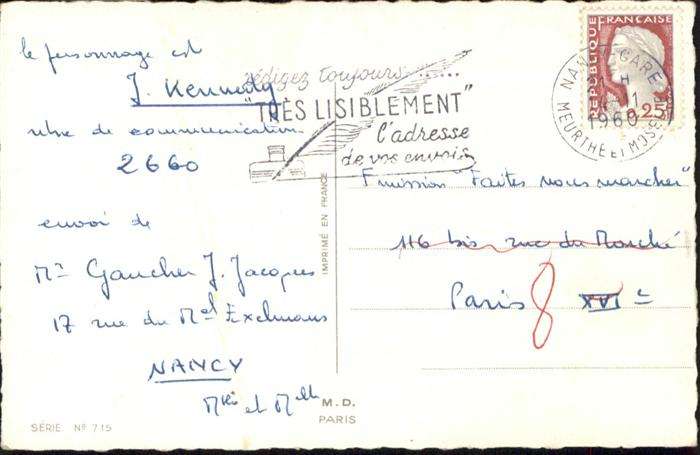 le personnage est
J. Kennedy
de communication
2660
envoi de
Mr Gaucher J. Jacques
17 rue du Mal Exelmans
NANCY
Mthe et Mlle
SÉRIE Nº 715
rédigez toujours ......
"TRÈS LISIBLEMENT"
l'adresse
de vos envois
IMPRIMÉ EN FRANCE
M.D.
PARIS
REPUBLIQUE FRANCAISE
0,25
NANCY GARE
H
1960
MEURTHE ET MOSELLE
Emission "Faites vous marcher"
116 bis rue du Marché
Paris 8 XVIe